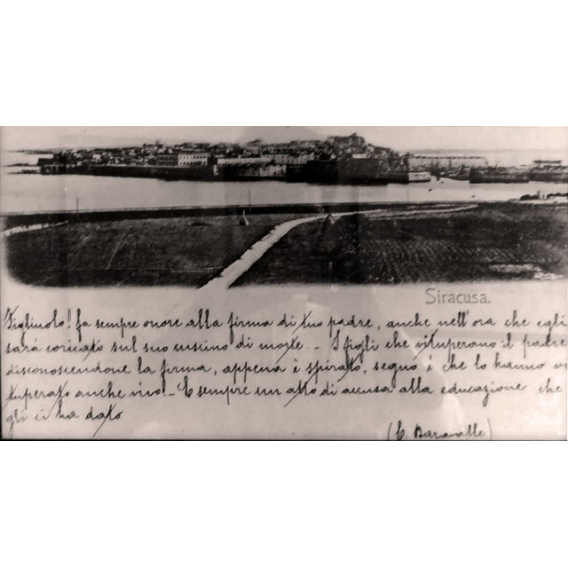 Siracusa.
Figliuolo! fa sempre onore alla firma di tuo padre, anche nell'ora che egli
sarà coricato sul suo cuscino di morte. – I figli che vituperano il padre
disconoscendone la firma, appena è spirato, segno è che lo hanno vi
tuperato anche vivo! – E sempre un atto di accusa alla educazione che
gli ci ha dato
(C. Baravalle)